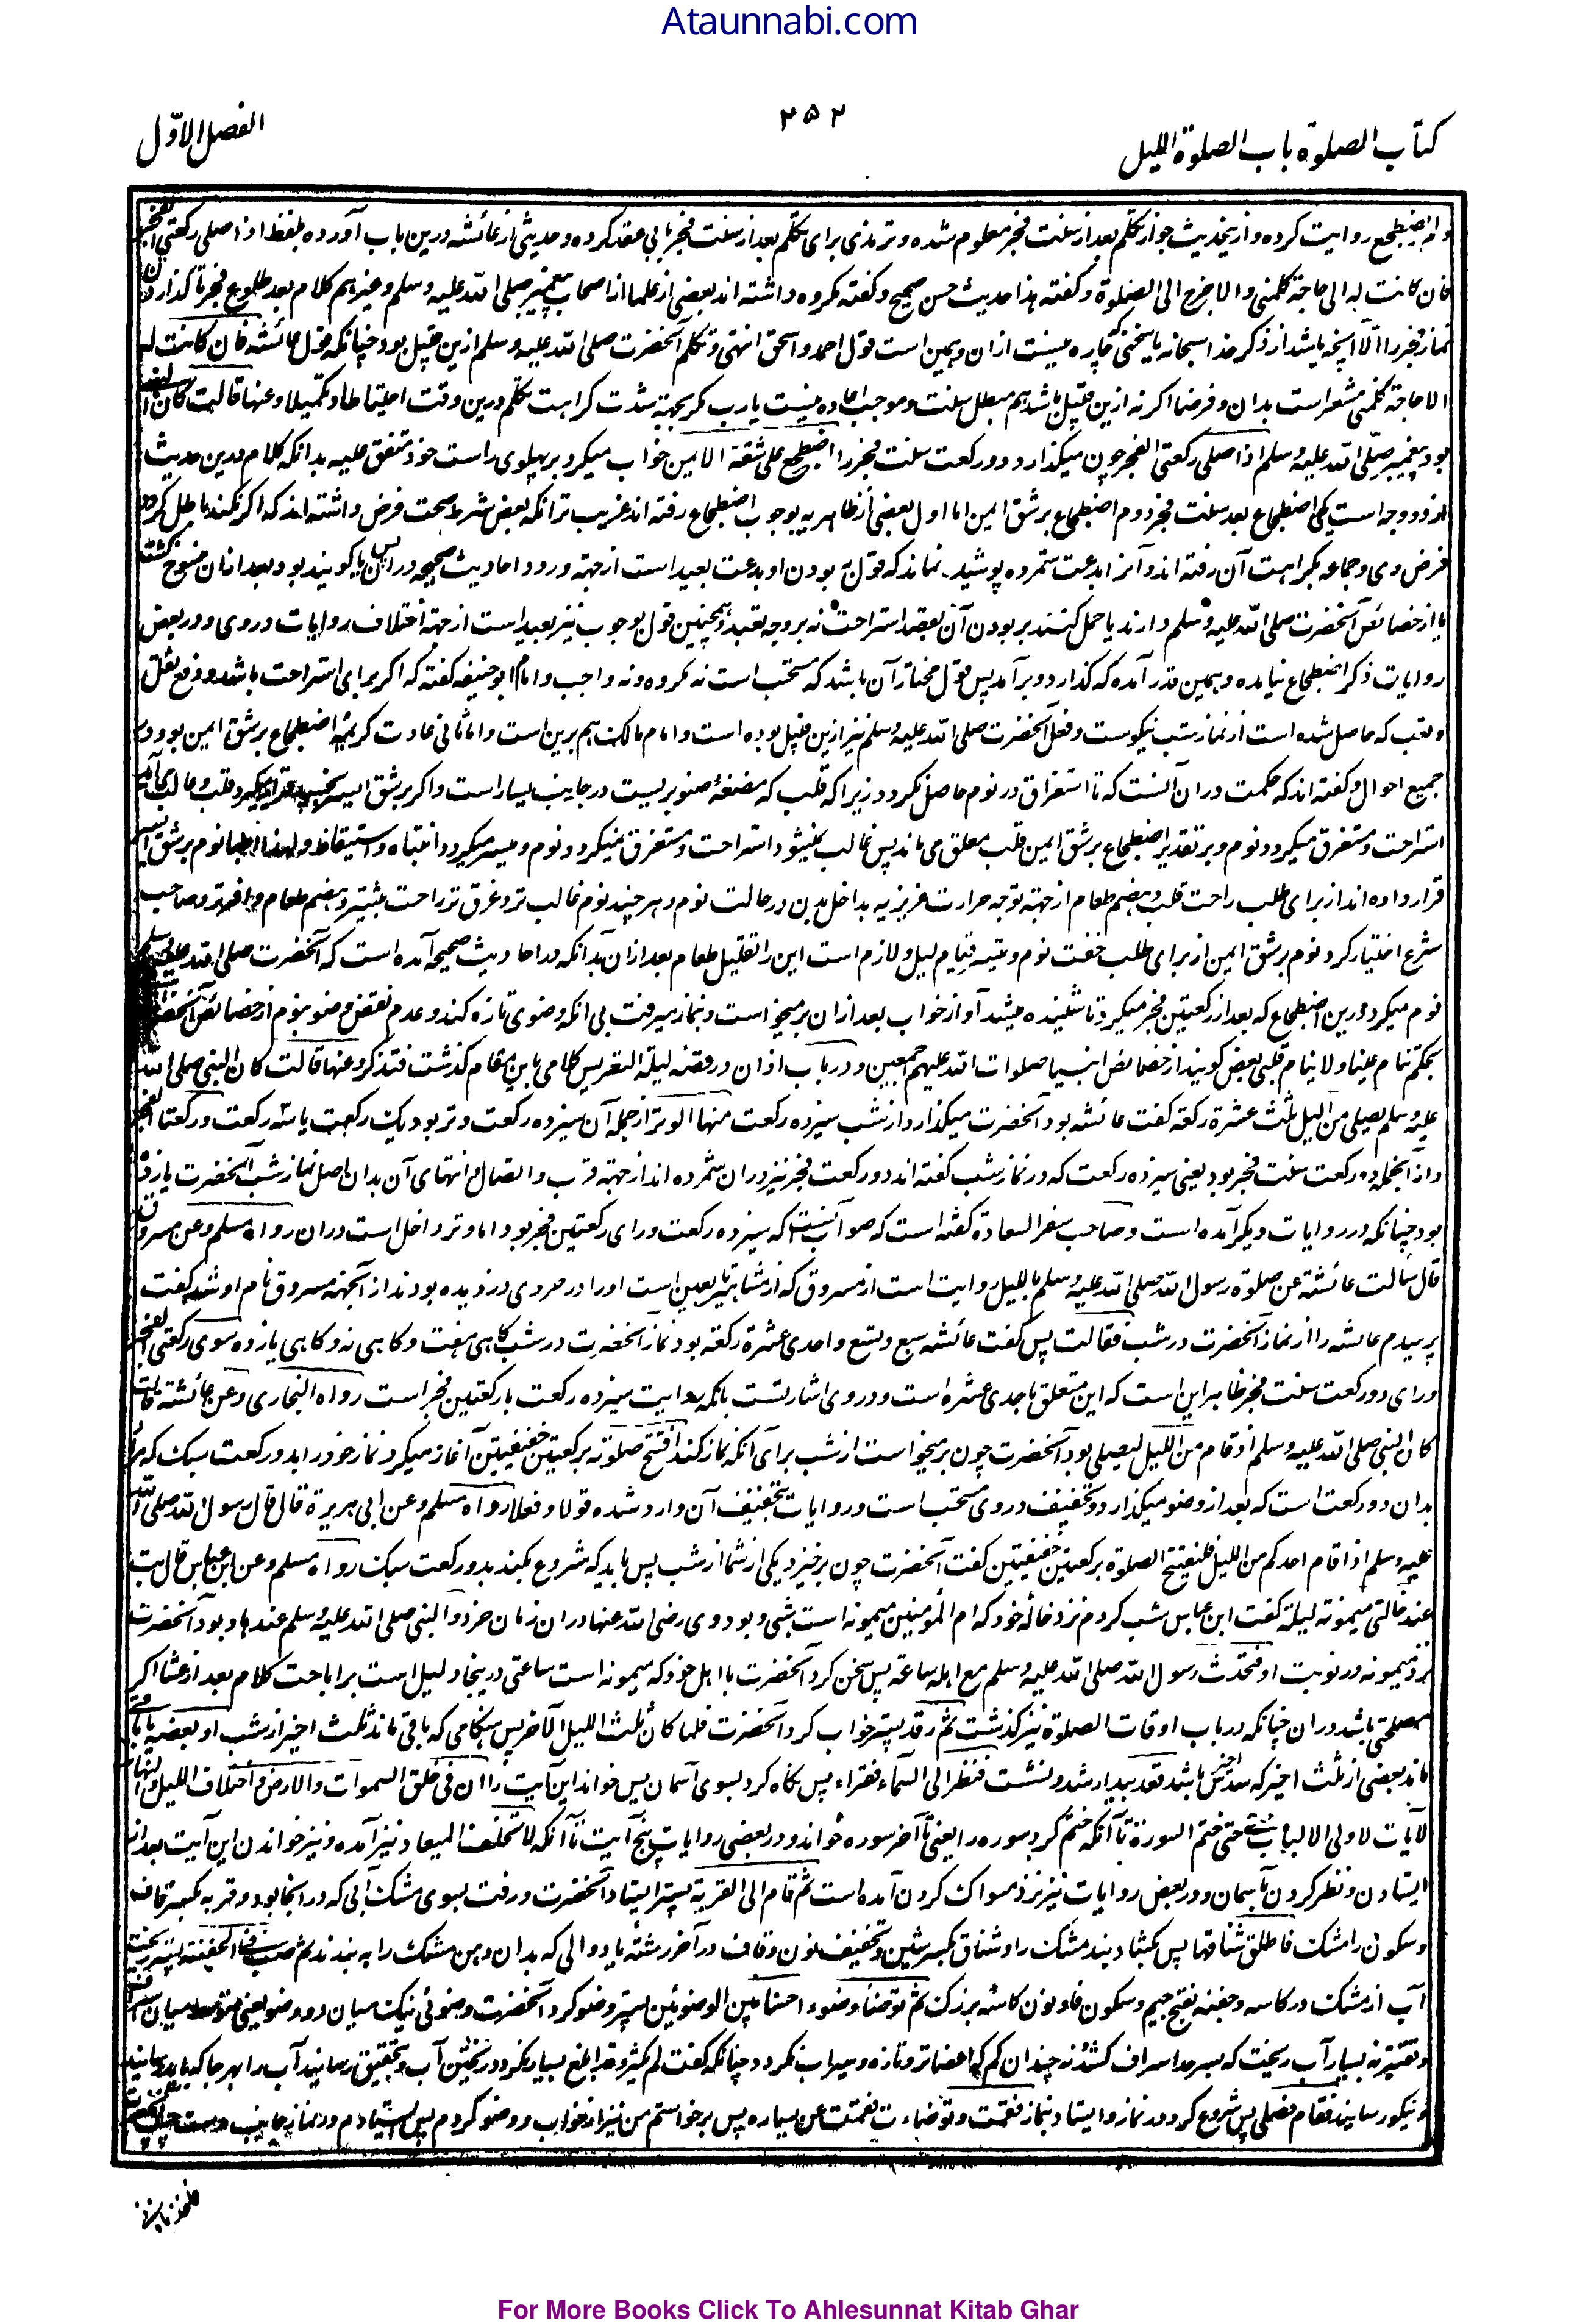 Ataunnabi.com
کتاب الصلوة باب الصلوة اللیل
۲۵۲
الفصل الاوّل
روایت کرده و ازینحدیث جواز تکلم بعد از سنت فجر معلوم شده و ترمذی برای تکلم بعد از سنت فجر بابی عقد کرده و حدیثی از عائشه درین باب آورده بلفظ اذا صلی رکعتی الفجر
فان کانت له الی حاجة کلمنی والا خرج الی الصلوة و گفته هذا حدیث حسن صحیح و گفته مکروه داشته اند بعضی از علما از اصحاب پیغمبر صلی الله علیه وسلم و غیرهم کلام بعد طلوع فجر تا گذاردن
نماز فجر را الا آنچه باشد از ذکر خدا سبحانه یا سخنی که چاره نیست ازان و همین است قول احمد و اسحق انتهی و تکلم آنحضرت صلی الله علیه وسلم ازین قبیل بود چنانکه قول عائشه فان کانت له
الی حاجة کلمنی مشعر است بدان و فرضا اگر نه ازین قبیل باشد هم مبطل سنت و موجب اعاده نیست یا رب مگر بجهة شدت کراهت تکلم درین وقت احتیاطا و تکمیلا وعنها قالت کان النبی
بود پیغمبر صلی الله علیه وسلم اذا صلی رکعتی الفجر چون میگذارد دو رکعت سنت فجر را اضطجع علی شقه الایمن خواب میکرد بر پهلوی راست خود متفق علیه بدانکه کلام درین حدیث
از دو وجه است یکی اضطجاع بعد سنت فجر دوم اضطجاع بر شق ایمن اما اول بعضی از ظاهریه بوجوب اضطجاع رفته اند غریب تر آنکه بعض شرط صحت فرض داشته اند که اگر نکند باطل گردد
فرض وی و جماعه بکراهت آن رفته اند و آنرا بدعت شمرده پوشیده نماند که قول به بودن او بدعت بعید است از جهة ورود احادیث صحیحه دران یا گویند بود بعد ازان منسوخ گشت
یا از خصائص آنحضرت صلی الله علیه وسلم دارند یا حمل کنند بر بودن آن بقصد استراحت نه بر وجه تعبد و همچنین قول بوجوب نیز بعید است از جهة اختلاف روایات در وی و در بعض
روایات ذکر اضطجاع نیامده و همین قدر آمده که گذارد و برآمد پس قول مختار آن باشد که مستحب است نه مکروه و نه واجب و امام ابو حنیفه گفته که اگر برای استراحت باشد و دفع ثقل
و تعب که حاصل شده است از نماز شب نیکوست و فعل آنحضرت صلی الله علیه وسلم نیز ازین قبیل بوده است و امام مالک هم برین است و اما ثانی عادت کریمه اضطجاع بر شق ایمن بود در
جمیع احوال و گفته اند که حکمت دران آنست که تا استغراق در نوم حاصل نگردد زیرا که قلب که مضغهٔ صنوبریست در جانب یسار است و اگر بر شق ایسر خسپد قرار گیرد قلب و غالب آید
استراحت و مستغرق میگردد نوم و بر تقدیر اضطجاع بر شق ایمن قلب معلق می ماند پس غالب نمیشود استراحت و مستغرق نمیگردد نوم و میسر میگردد انتباه و استیقاظ و لهذا اطبا نوم بر شق ایسر
قرار داده اند از برای طلب راحت قلب و هضم طعام از جهة توجه حرارت غریزیه بداخل بدن در حالت نوم و هر چند نوم غالب تر و غرق تر راحت بیشتر و هضم طعام وافرتر و صاحب
شرع اختیار کرد نوم بر شق ایمن از برای طلب خفت نوم و تهیه قیام لیل و لازم است این را تقلیل طعام بعد ازان بدانکه در احادیث صحیحه آمده است که آنحضرت صلی الله علیه وسلم
نوم میکرد درین اضطجاع که بعد از رکعتین فجر میکرد تا شنیده میشد آواز خواب بعد ازان برمیخواست و نماز میرفت بی آنکه وضوی تازه کند و عدم نقض وضو بنوم از خصائص آنحضرت
بحکم تنام عینای و لا ینام قلبی و بعض گویند از خصائص انبیا صلوات الله علیهم اجمعین و در باب اذان در قصه لیلة التعریس کلامی باین مقام گذشت فتذکر وعنها قالت کان النبی صلی الله
علیه وسلم یصلی من اللیل ثلث عشرة رکعة گفت عائشه بود آنحضرت میگذارد از شب سیزده رکعت منها الوتر از جمله آن سیزده رکعت وتر بود یک رکعت یا سه رکعت و رکعتا الفجر
و از آنجمله دو رکعت سنت فجر بود یعنی سیزده رکعت که در نماز شب گفته اند دو رکعت فجر نیز دران شمرده اند از جهة قرب و اتصال و انتهای آن بدان و اصل نماز شب آنحضرت یازده
بود چنانکه در روایات دیگر آمده است و صاحب سفر السعادة گفته است که صواب آنست که سیزده رکعت ورای رکعتین فجر بود اما وتر داخل است دران رواه مسلم وعن مسروق
قال سألت عائشة عن صلوة رسول الله صلی الله علیه وسلم باللیل روایت است از مسروق که از مشاهیر تابعین است او را در خردی دزدیده بودند از آنجهة مسروق نام او شد گفت
پرسیدم عائشه را از نماز آنحضرت در شب فقالت پس گفت عائشه سبع و تسع و احدی عشرة رکعة بود نماز آنحضرت در شب گاهی هفت و گاهی نه و گاهی یازده سوی رکعتی الفجر
ورای دو رکعت سنت فجر ظاهر این است که این متعلق باحدی عشره است و در وی اشارتست بآنکه روایت سیزده رکعت با رکعتین فجر است رواه البخاری وعن عائشة قالت
کان النبی صلی الله علیه وسلم اذا قام من اللیل لیصلی بود آنحضرت چون برمیخواست از شب برای آنکه نماز کند افتتح صلوته برکعتین خفیفتین آغاز میکرد نماز خود را بدو رکعت سبک که مراد
بدان دو رکعت است که بعد از وضو میگذارد و تخفیف در وی مستحب است و روایات بتخفیف آن وارد شده قولا و فعلا رواه مسلم وعن ابی هریرة قال قال رسول الله صلی الله
علیه وسلم اذا قام احدکم من اللیل فلیفتتح الصلوة برکعتین خفیفتین گفت آنحضرت چون برخیزد یکی از شما از شب پس باید که شروع بکند بدو رکعت سبک رواه مسلم وعن ابن عباس قال بت
عند خالتی میمونة لیلة گفت ابن عباس شب کردم نزد خالهٔ خود که ام المؤمنین میمونه است شبی و بود وی رضی الله عنها دران زمان خرد والنبی صلی الله علیه وسلم عندها و بود آنحضرت
نزد میمونه در نوبت او فتحدث رسول الله صلی الله علیه وسلم مع اهله ساعة پس سخن کرد آنحضرت با اهل خود که میمونه است ساعتی درینجا دلیل است بر اباحت کلام بعد از عشا اگر
مصلحتی باشد دران چنانکه در باب اوقات الصلوة نیز گذشت ثم رقد پستر خواب کرد آنحضرت فلما کان ثلث اللیل الآخر پس هنگامی که باقی ماند ثلث اخیر از شب او بعضه یا باقی
ماند بعضی از ثلث اخیر که سدس اخیر باشد قعد بیدار شد و نشست فنظر الی السماء فقرأ پس نگاه کرد بسوی آسمان پس خواند این آیت را ان فی خلق السموات والارض واختلاف اللیل والنهار
لآیات لاولی الالباب حتی ختم السورة تا آنکه ختم کرد سوره را یعنی تا آخر سوره خواند و در بعضی روایات پنج آیت تا آنکه لا تخلف المیعاد نیز آمده و نیز خواندن این آیت بعد از
ایستادن و نظر کردن بآسمان و در بعض روایات نیز نزد مسواک کردن آمده است ثم قام الی القربة پستر ایستاد آنحضرت و رفت بسوی مشک آبی که در آنجا بود و قربه بکسر قاف
و سکون را مشک فاطلق شناقها پس بکشاد بند مشک را و شناق بکسر شین و تخفیف نون و قاف در آخر رشته یا دوالی که بدان دهن مشک را به بندند ثم صب فی الجفنة پستر ریخت
آب از مشک در کاسه و جفنه بفتح جیم و سکون فا و نون کاسه بزرگ ثم توضأ وضوءا حسنا بین الوضوئین پستر وضو کرد آنحضرت وضوئی نیک میان دو وضو یعنی متوسط میان اسراف
و تقتیر نه بسیار آب ریخت که بسر حد اسراف کشد و نه چندان کم که اعضا تر و تازه و سیراب نگردد چنانکه گفت لم یکثر وقد ابلغ بسیار نکرد در ریختن آب و بتحقیق رسانید آب را بهر جا که باید رسانید
و نیکو رسانید فقام فصلی پس شروع کرد در نماز و ایستاد بنماز فقمت وتوضأت فقمت عن یساره پس برخواستم من نیز از خواب و وضو کردم پس ایستادم در نماز جانب دست چپ آنحضرت
فاخذ باذنی
For More Books Click To Ahlesunnat Kitab Ghar